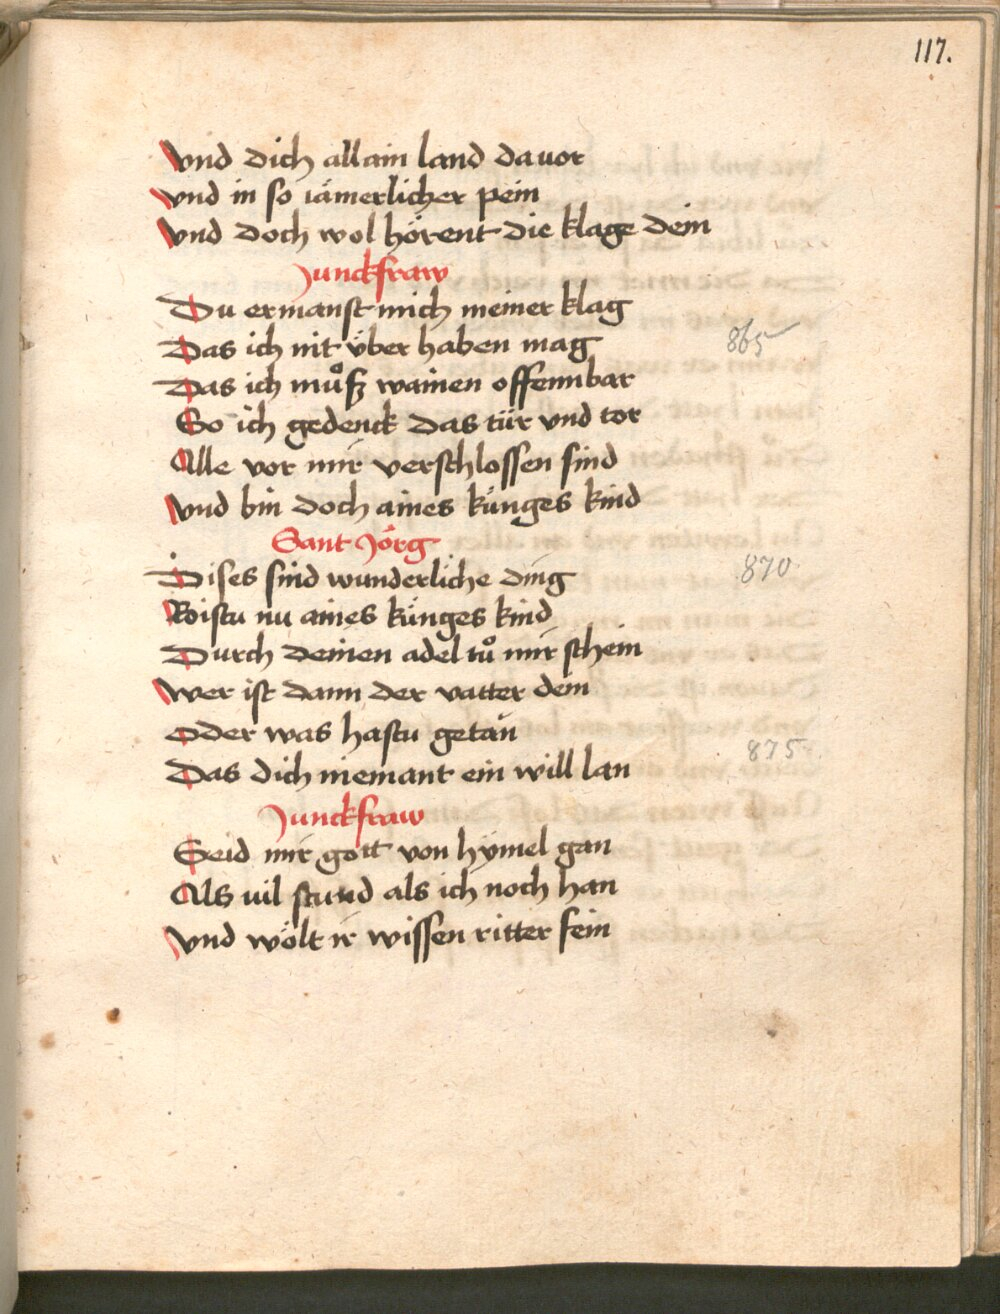 117.
Vnd dich allain land dauor
Vnd in so iämerlicher pein
Vnd doch wol hörent die klage dein
Junckfraw
Du ermanst mich meiner klag
Das ich nit über haben mag
865
Das ich můß wainen offennbar
So ich gedenck das tür vnd tor
Alle vor mir verschlossen sind
Vnd bin doch aines künges kind
Sant Jörg
Dises sind wunderliche ding
870
Roistu nu aines künges kind
Durch deinen adel tů mir schein
Wer ist dann der vatter dein
Oder was hastu getän
Das dich niemant ein will lan
875
Junckfraw
Seid mir gott von hymel gan
Als uil stund als ich noch han
Vnd wölt ir wissen ritter fein